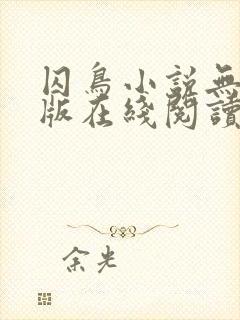 囚鳥小説無
版在綫閱讀
余光